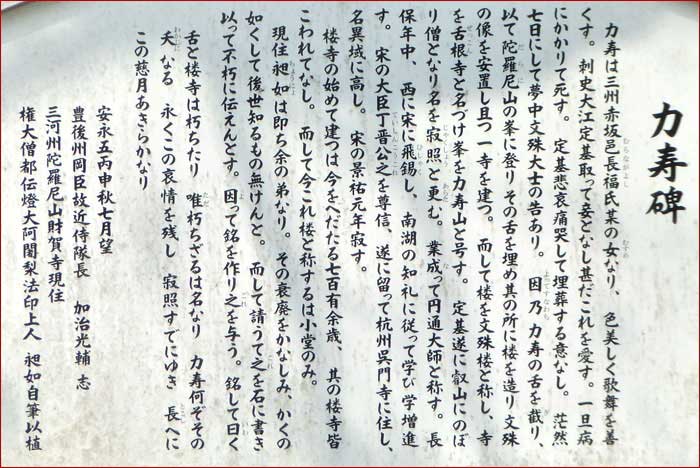 力寿碑
力寿は三州赤坂邑長福氏某の女なり、色美しく歌舞を善
くす。刺史大江定基取って妾となし甚だこれを愛す。一旦病
にかかりて死す。定基悲哀痛哭して埋葬する意なし。茫然
七日にして夢中文殊大士の告あり。因乃力寿の舌を截り、
以て陀羅尼山の峯に登りその舌を埋め其の所に楼を造り文殊
の像を安置し且つ一寺を建つ。而して楼を文殊楼と称し、寺
を舌根寺と名づけ峯を力寿山と号す。定基遂に叡山にのぼ
り僧となり名を寂照と更む。業成って円通大師と称す。長
保年中、西に宋に飛錫し、南湖の知礼に従って学び学増進
す。宋の大臣丁晋公之を尊信、遂に留って杭州呉門寺に住し、
名異域に高し。宋の景祐元年寂す。
楼寺の始めて建つは今をへだたる七百有余歳、其の楼寺皆
こわれてなし。而して今これ楼と称するは小堂のみ。
現住昶如は即ち余の弟なり。その衰廃をかなしみ、かくの
如くして後世知るもの無けんと。而して請うて之を石に書き
以って不朽に伝えんとす。因って銘を作り之を与う。銘して曰く
舌と楼寺は朽ちたり 唯朽ちざるは名なり 力寿何ぞその
夭なる 永くこの哀情を残し 寂照すでにゆき 長へに
この慈月あきらかなり
安永五丙申秋七月望
豊後州岡臣故近侍隊長 加治光輔 志
三河州陀羅尼山財賀寺現住
権大僧都伝燈大阿闍梨法印上人 昶如自筆以植